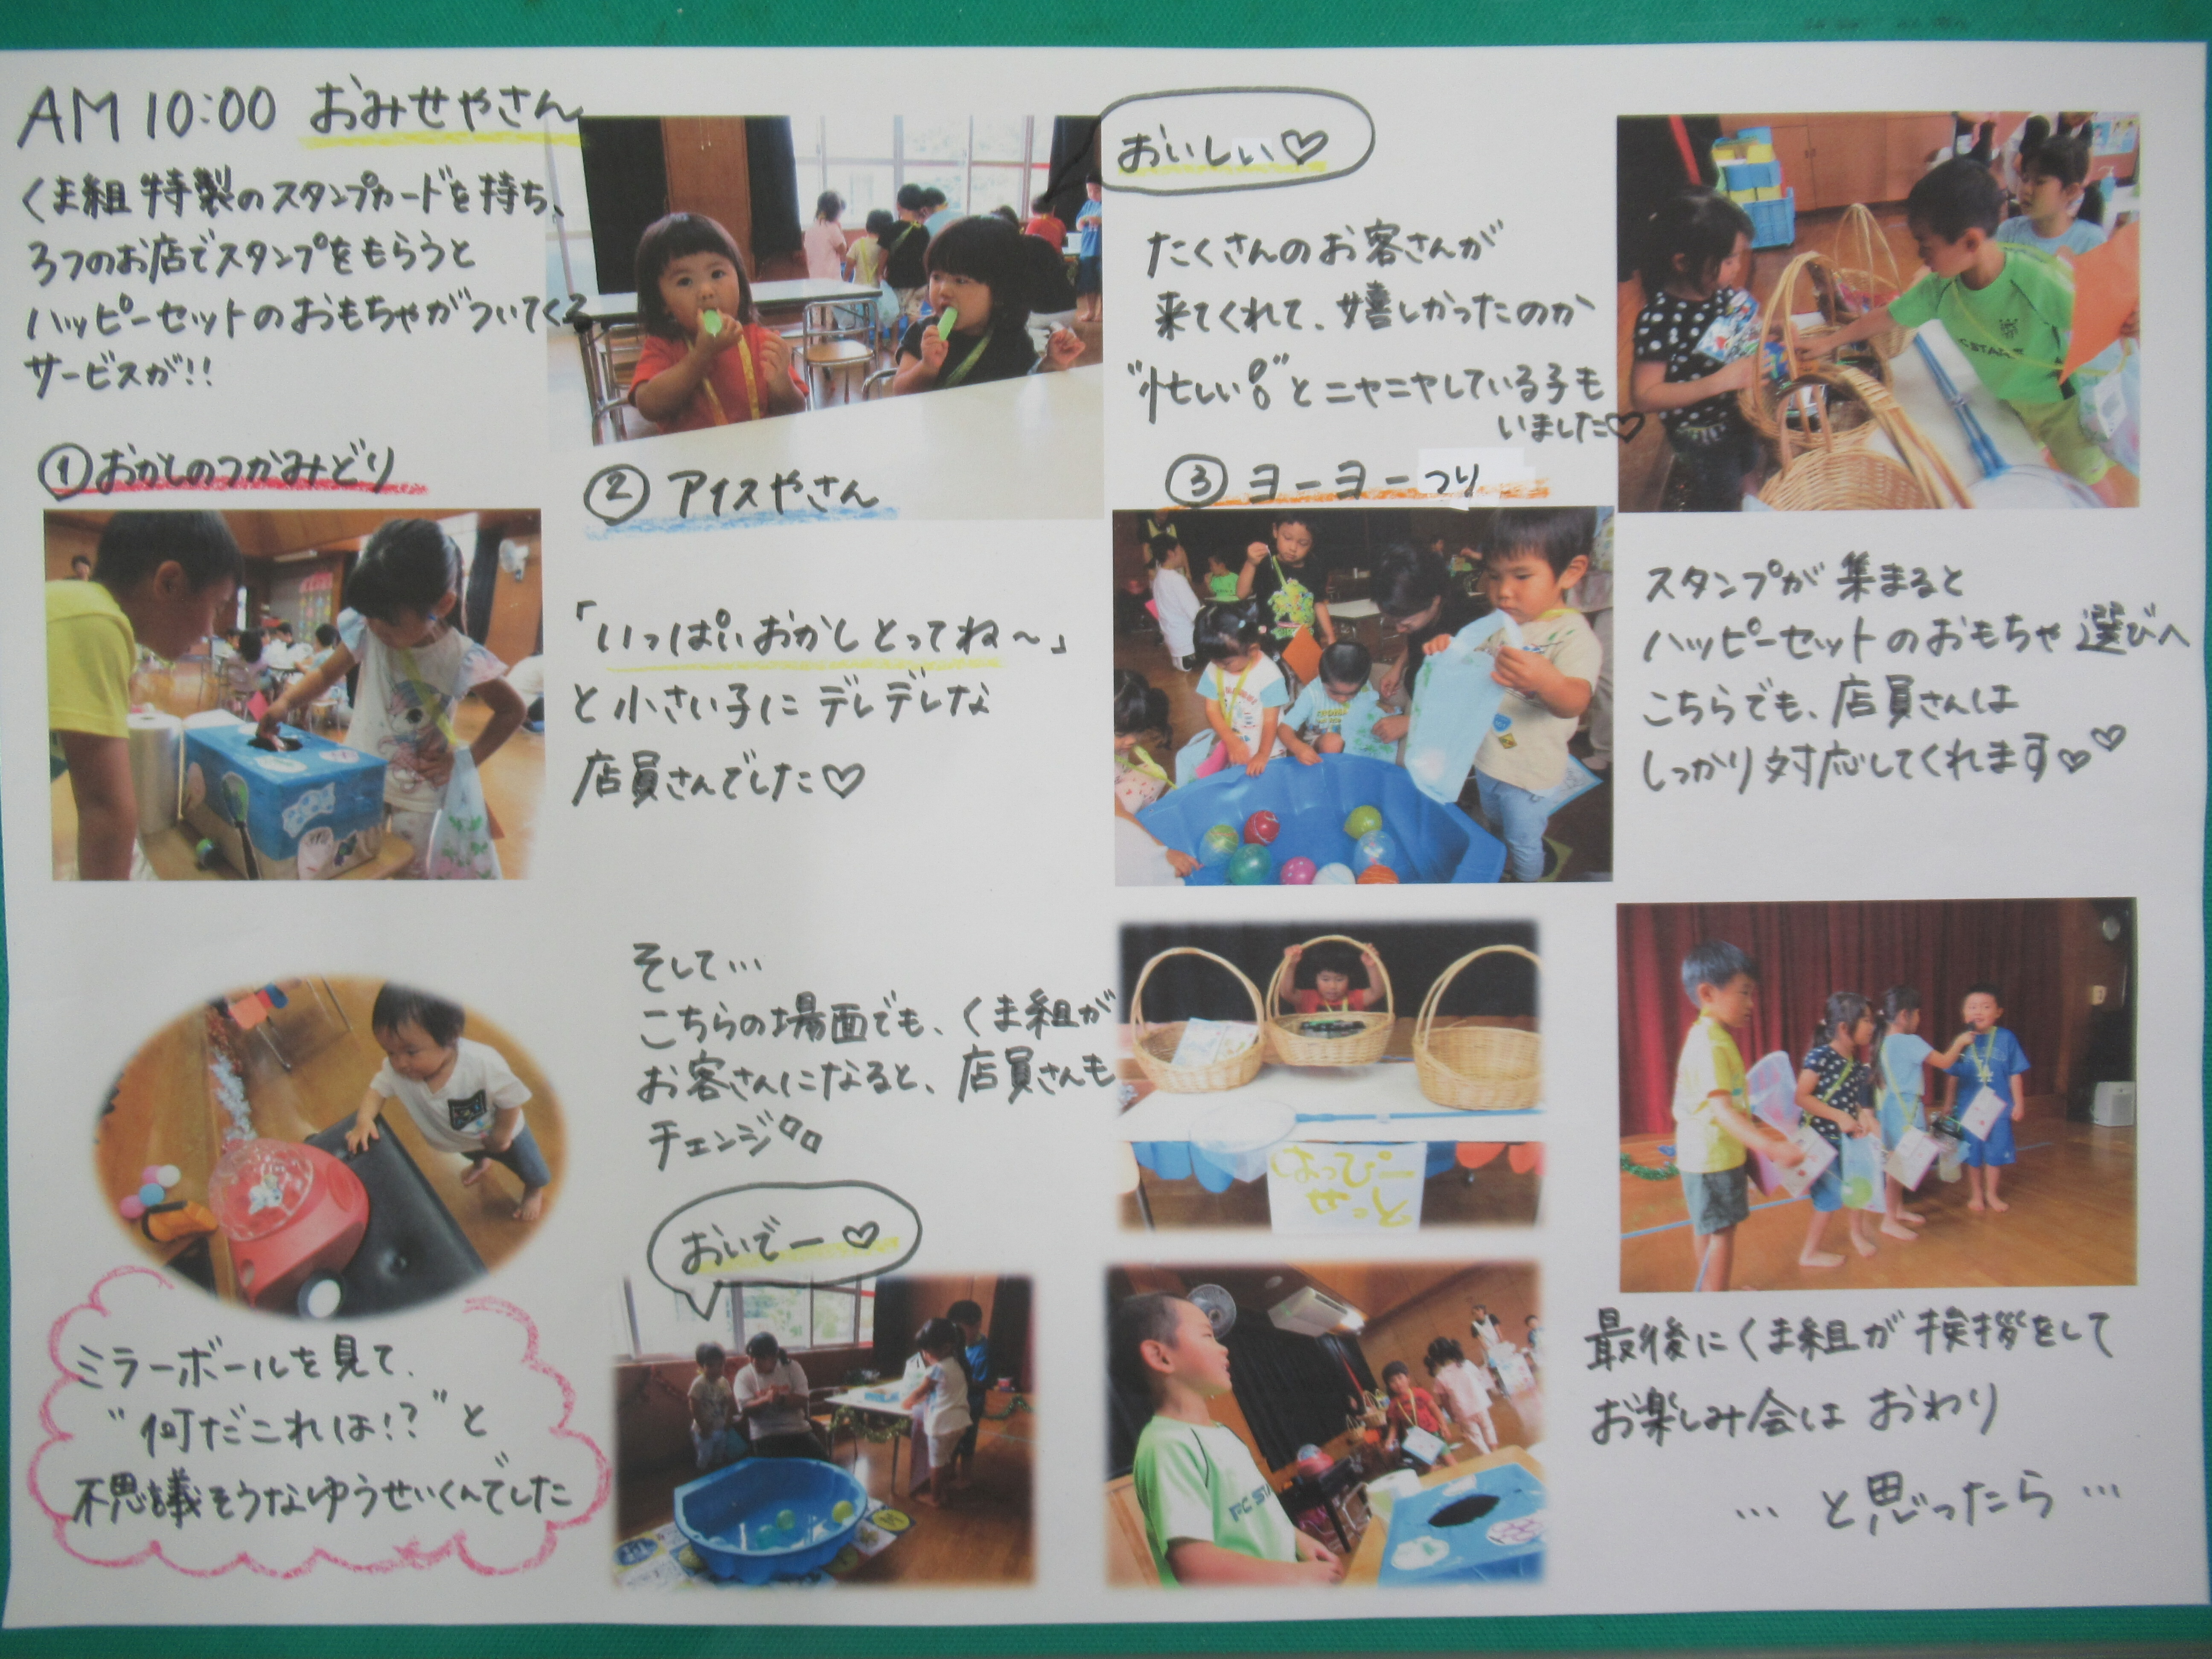 AM 10:00 おみせやさん
くま組 特製のスタンプカードを持ち、
3つのお店でスタンプをもらうと
ハッピーセットのおもちゃがついてくる
サービスが!!
①おかしのつかみどり
②アイスやさん
「いっぱいおかしとってね〜」
と小さい子にデレデレな
店員さんでした♡
おいしい♡
たくさんのお客さんが
来てくれて、嬉しかったのか
"忙しい"とニヤニヤしている子も
いました♡
③ヨーヨーつり
スタンプが集まると
ハッピーセットのおもちゃ選びへ
こちらでも、店員さんは
しっかり対応してくれます♡♡
ミラーボールを見て、
"何だこれは!?"と
不思議そうなゆうせいくんでした
そして…
こちらの場面でも、くま組が
お客さんになると、店員さんも
チェンジ
おいでー♡
はっぴー
せっと
最後にくま組が挨拶をして
お楽しみ会は おわり
… と思ったら …